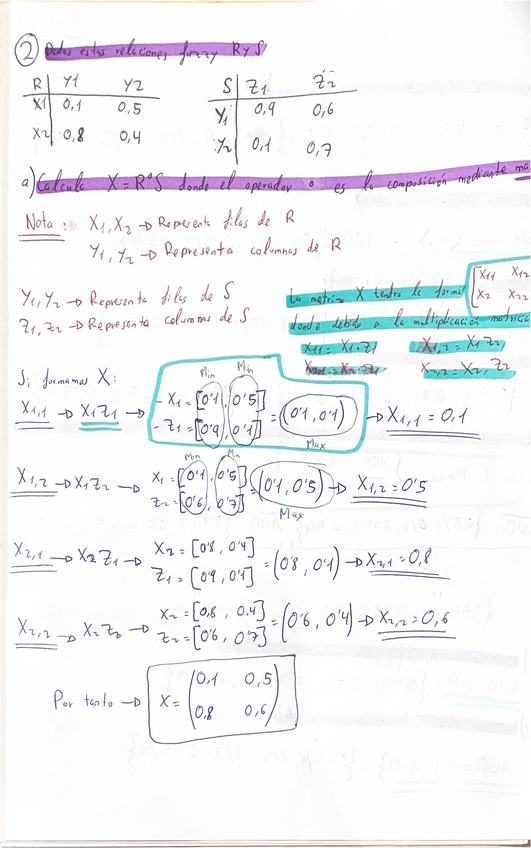 ② Dadas estas relaciones fuzzy R y S
R Y1 Y2
X1 0,1 0,5
X2 0,8 0,4
S Z1 Z2
Y1 0,9 0,6
Y2 0,1 0,7
a) Calcula X = R°S donde el operador ° es la composición mediante ma
Nota: X1, X2 → Representa filas de R
Y1, Y2 → Representa columnas de R
Y1, Y2 → Representa filas de S
Z1, Z2 → Representa columnas de S
La matriz X tendra la forma [X11 X12
X2 X22
donde debido a la multiplicación matricia
X11 = X1·Z1 X1,2 = X1 Z2
X2,2 = X2, Z2
Si formamos X:
Min Min
X1,1 → X1Z1 → - X1 = [0'1, 0'5]
- Z1 = [0'9, 0'1] = (0'1, 0'1) → X1,1 = 0,1
Max
Min Min
X1,2 → X1Z2 → X1 = [0'1, 0'5]
Z2 = [0'6, 0'7] = (0'1, 0'5) → X1,2 = 0'5
Max
X2,1 → X2 Z1 → X2 = [0'8, 0'4]
Z1 = [0'9, 0'1] = (0'8, 0'1) → X2,1 = 0,8
X2,2 → X2 Z2 → X2 = [0,8, 0,4]
Z2 = [0'6, 0'7] = (0'6, 0'4) → X2,2 = 0,6
Por tanto → X = (0,1 0,5
0,8 0,6)